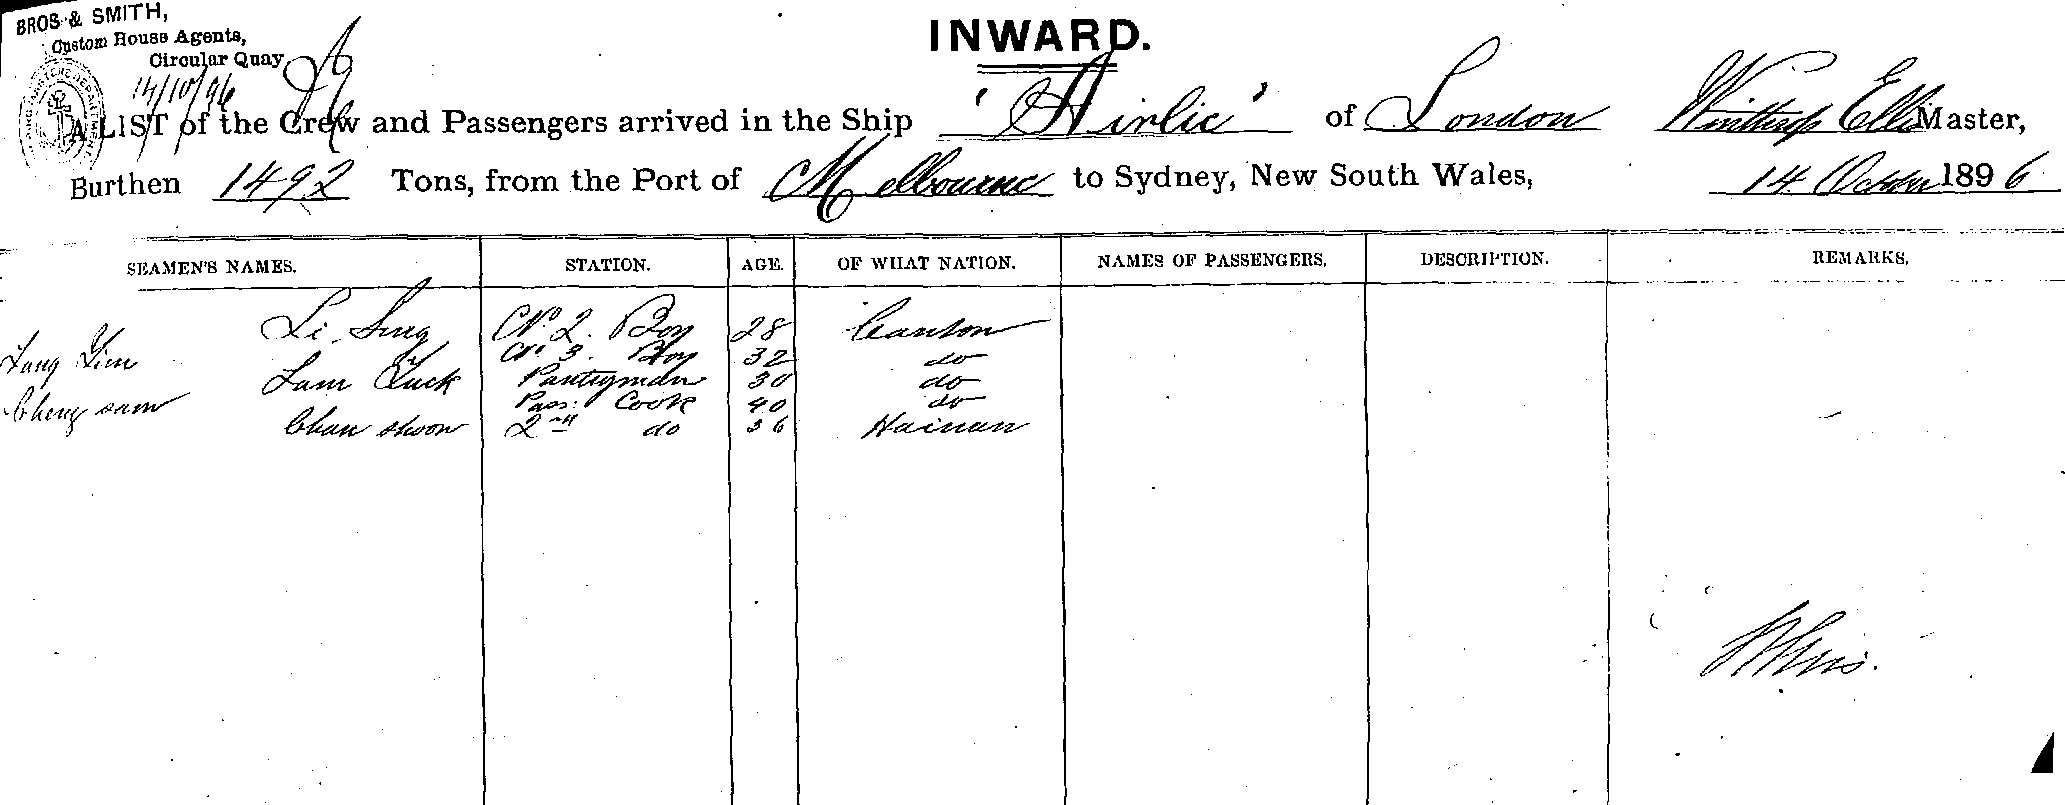 BROS & SMITH,
Custom House Agents,
Circular Quay
14/10/96
INWARD.
A LIST of the Crew and Passengers arrived in the Ship 'Airlie' of London Winthrop Ellis Master,
Burthen 1492 Tons, from the Port of Melbourne to Sydney, New South Wales, 14 October 1896
SEAMEN'S NAMES. STATION. AGE. OF WHAT NATION. NAMES OF PASSENGERS. DESCRIPTION. REMARKS.
Li Sing No. 2. Boy 28 Canton
No. 3. Boy 32 do
Lam Pantryman 30 do
Cheng sam Pass: Cook 40 do
Chan 2nd do 36 Hainan